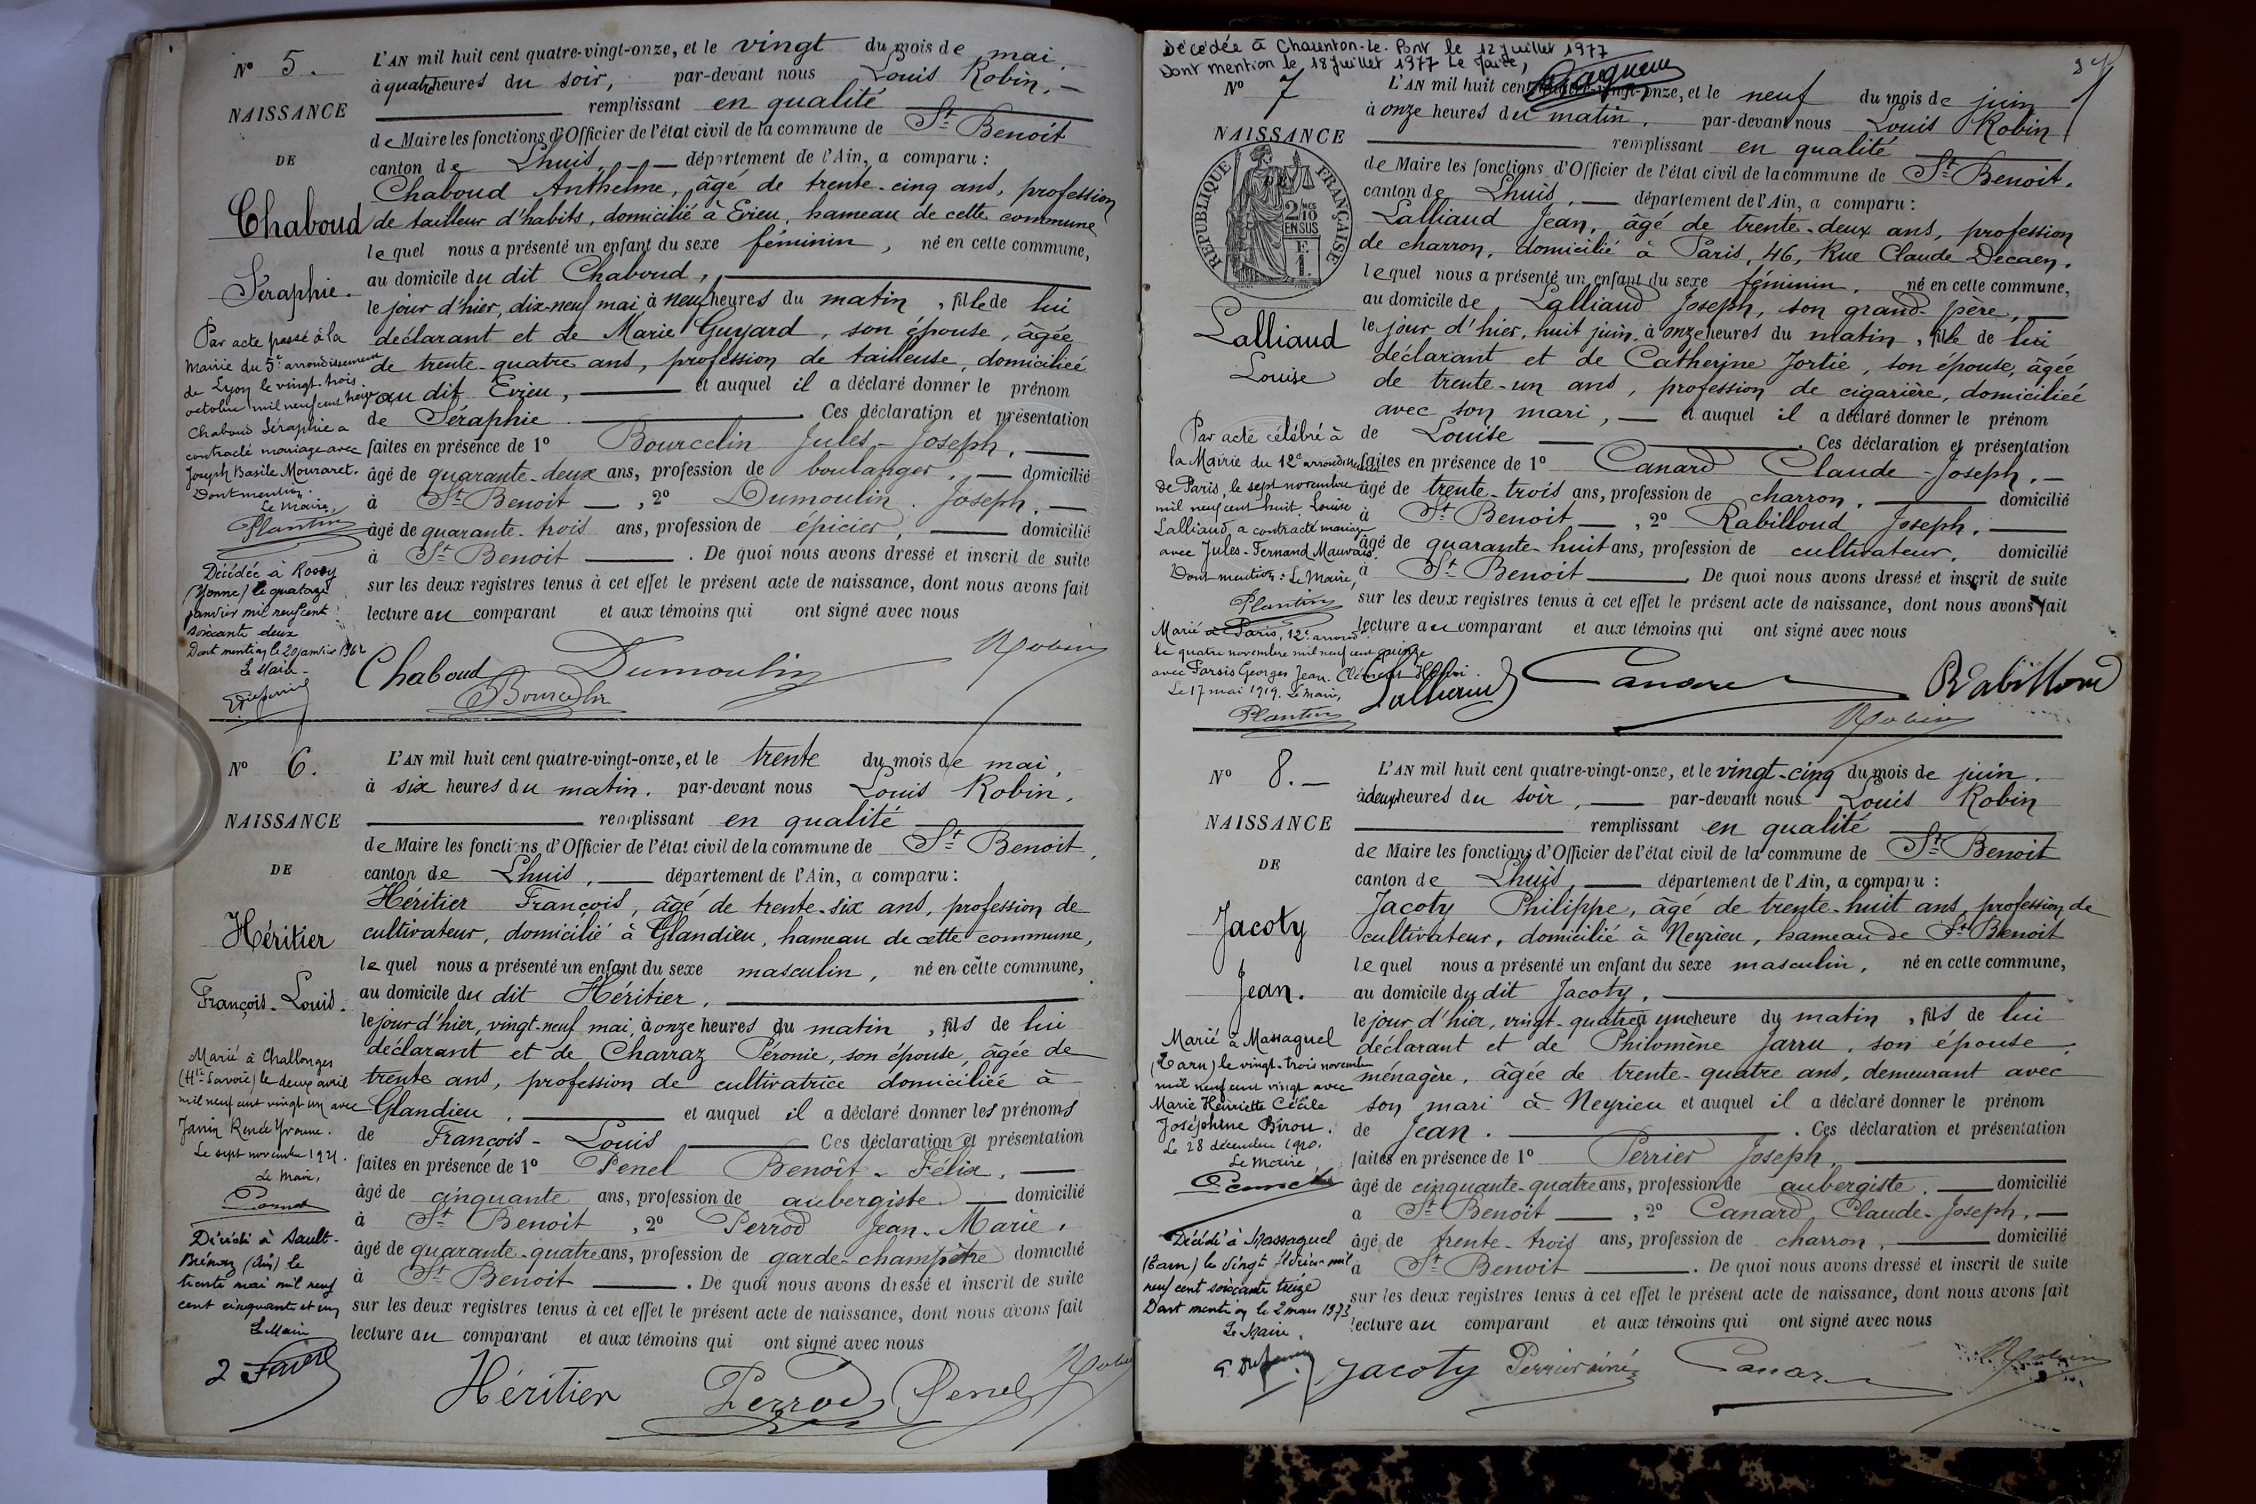 N° 5.
NAISSANCE
DE
Chaboud
Séraphie.
Par acte passé à la
Mairie du 5e arrondissement
de Lyon le vingt-trois
octobre mil neuf cent treize
Chaboud Séraphie a
contracté mariage avec
Joseph Basile Mouraret.
Dont mention.
Le Maire,
Plantin
Décédée à
(Yonne) le quatorze
janvier mil neuf cent
soixante deux
Dont mention le 20 janvier 1962
Le Maire
L'AN mil huit cent quatre-vingt-onze, et le vingt du mois de mai.
à quatre heures du soir, par-devant nous Louis Robin,
remplissant en qualité
de Maire les fonctions d'Officier de l'état civil de la commune de St Benoit
canton de Lhuis, département de l'Ain, a comparu :
Chaboud Anthelme, âgé de trente-cinq ans, profession
de tailleur d'habits, domicilié à Evieu, hameau de cette commune
lequel nous a présenté un enfant du sexe féminin, né en cette commune,
au domicile du dit Chaboud,
le jour d'hier, dix-neuf mai à neuf heures du matin, fille de lui
déclarant et de Marie Guyard, son épouse, âgée
de trente-quatre ans, profession de tailleuse, domiciliée
au dit Evieu, et auquel il a déclaré donner le prénom
de Séraphie. Ces déclaration et présentation
faites en présence de 1° Bourcelin Jules-Joseph,
âgé de quarante-deux ans, profession de boulanger, domicilié
à St Benoit, 2° Dumoulin Joseph,
âgé de quarante-trois ans, profession de épicier, domicilié
à St Benoit. De quoi nous avons dressé et inscrit de suite
sur les deux registres tenus à cet effet le présent acte de naissance, dont nous avons fait
lecture au comparant et aux témoins qui ont signé avec nous
Chaboud Dumoulin Robin
Bourcelin
N° 6.
NAISSANCE
DE
Héritier
François-Louis.
Marié à Challonges
(Hte Savoie) le deux avril
mil neuf cent vingt un avec
Janin Renée Yvonne.
Le sept novembre 1921.
Le Maire,
Décédé à Sault-
Brénaz (Ain) le
trente mai mil neuf
cent cinquante et un
Le Maire
L'AN mil huit cent quatre-vingt-onze, et le trente du mois de mai,
à six heures du matin, par-devant nous Louis Robin,
remplissant en qualité
de Maire les fonctions d'Officier de l'état civil de la commune de St Benoit,
canton de Lhuis, département de l'Ain, a comparu :
Héritier François, âgé de trente-six ans, profession de
cultivateur, domicilié à Glandieu, hameau de cette commune,
lequel nous a présenté un enfant du sexe masculin, né en cette commune,
au domicile du dit Héritier,
le jour d'hier, vingt-neuf mai, à onze heures du matin, fils de lui
déclarant et de Charraz Péronie, son épouse, âgée de
trente ans, profession de cultivatrice domiciliée à
Glandieu, et auquel il a déclaré donner les prénoms
de François-Louis Ces déclaration et présentation
faites en présence de 1° Penel Benoît-Félix,
âgé de cinquante ans, profession de aubergiste domicilié
à St Benoit, 2° Perrod Jean-Marie,
âgé de quarante-quatre ans, profession de garde-champêtre domicilié
à St Benoit. De quoi nous avons dressé et inscrit de suite
sur les deux registres tenus à cet effet le présent acte de naissance, dont nous avons fait
lecture au comparant et aux témoins qui ont signé avec nous
Héritier Perrod Penel Robin
Décédée à Charenton-le-Pont le 12 juillet 1977
Dont mention le 18 juillet 1977 Le Maire,
N° 7
NAISSANCE
DE
RÉPUBLIQUE FRANÇAISE
2/10 MES
EN SUS
F. 1.
Lalliaud
Louise
Par acte célébré à
la Mairie du 12e arrondissement
de Paris, le sept novembre
mil neuf cent huit, Louise
Lalliaud, a contracté mariage
avec Jules-Fernand Mauvais.
Dont mention : Le Maire,
Plantin
Marié à Paris, 12e arrond
le quatre novembre mil neuf cent quinze
avec Parsis Georges Jean Clément Henri.
Le 17 mai 1919. Le Maire,
Plantin
L'AN mil huit cent quatre-vingt-onze, et le neuf du mois de juin
à onze heures du matin, par-devant nous Louis Robin
remplissant en qualité
de Maire les fonctions d'Officier de l'état civil de la commune de St Benoit,
canton de Lhuis, département de l'Ain, a comparu :
Lalliaud Jean, âgé de trente-deux ans, profession
de charron, domicilié à Paris, 46, Rue Claude Decaen,
lequel nous a présenté un enfant du sexe féminin, né en cette commune,
au domicile de Lalliaud Joseph, son grand-père,
le jour d'hier, huit juin, à onze heures du matin, fille de lui
déclarant et de Catherine Jortie, son épouse, âgée
de trente-un ans, profession de cigarière, domiciliée
avec son mari, et auquel il a déclaré donner le prénom
de Louise. Ces déclaration et présentation
faites en présence de 1° Canard Claude-Joseph,
âgé de trente-trois ans, profession de charron, domicilié
à St Benoit, 2° Rabilloud Joseph,
âgé de quarante-huit ans, profession de cultivateur, domicilié
à St Benoit. De quoi nous avons dressé et inscrit de suite
sur les deux registres tenus à cet effet le présent acte de naissance, dont nous avons fait
lecture au comparant et aux témoins qui ont signé avec nous
Lalliaud Canard Rabilloud
Robin
N° 8.
NAISSANCE
DE
Jacoty
Jean.
Marié à Massaguel
(Tarn) le vingt-trois novembre
mil neuf cent vingt avec
Marie Henriette Cécile
Joséphine Birou.
Le 28 décembre 1920.
Le Maire
Décédé à Massaguel
(Tarn) le vingt février mil
neuf cent soixante treize
Dont mention le 2 mars 1973
Le Maire,
L'AN mil huit cent quatre-vingt-onze, et le vingt-cinq du mois de juin.
à deux heures du soir, par-devant nous Louis Robin
remplissant en qualité
de Maire les fonctions d'Officier de l'état civil de la commune de St Benoit
canton de Lhuis, département de l'Ain, a comparu :
Jacoty Philippe, âgé de trente-huit ans, profession de
cultivateur, domicilié à Neyrieu, hameau de St Benoit
lequel nous a présenté un enfant du sexe masculin, né en cette commune,
au domicile du dit Jacoty,
le jour d'hier, vingt-quatre à une heure du matin, fils de lui
déclarant et de Philomène Jarru, son épouse,
ménagère, âgée de trente-quatre ans, demeurant avec
son mari à Neyrieu et auquel il a déclaré donner le prénom
de Jean. Ces déclaration et présentation
faites en présence de 1° Perrier Joseph,
âgé de cinquante-quatre ans, profession de aubergiste, domicilié
à St Benoit, 2° Canard Claude-Joseph,
âgé de trente-trois ans, profession de charron, domicilié
à St Benoit. De quoi nous avons dressé et inscrit de suite
sur les deux registres tenus à cet effet le présent acte de naissance, dont nous avons fait
lecture au comparant et aux témoins qui ont signé avec nous
Jacoty Perrier aîné Canard Robin